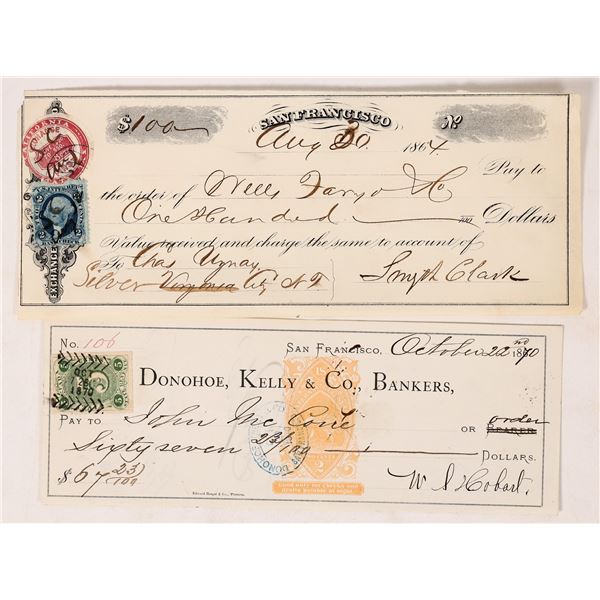 $100
SAN FRANCISCO
No
Aug 30 1864
Pay to
the order of Wells Fargo & Co
One Hundred /100 Dollars
Value received and charge the same to account of
To Chas
Silver Virginia City N T
Smyth Clark
CALIFORNIA
U.S. INTER. REV.
BANK CHECK
EXCHANGE
No. 106
SAN FRANCISCO, October 22nd 1870
5
OCT
1870
DONOHOE, KELLY & CO., BANKERS,
PAY TO John Mc Cone OR order BEARER
Sixty seven 23/100 DOLLARS.
$67 23/100
2
Good only for checks and
drafts payable at sight.
W S Hobart